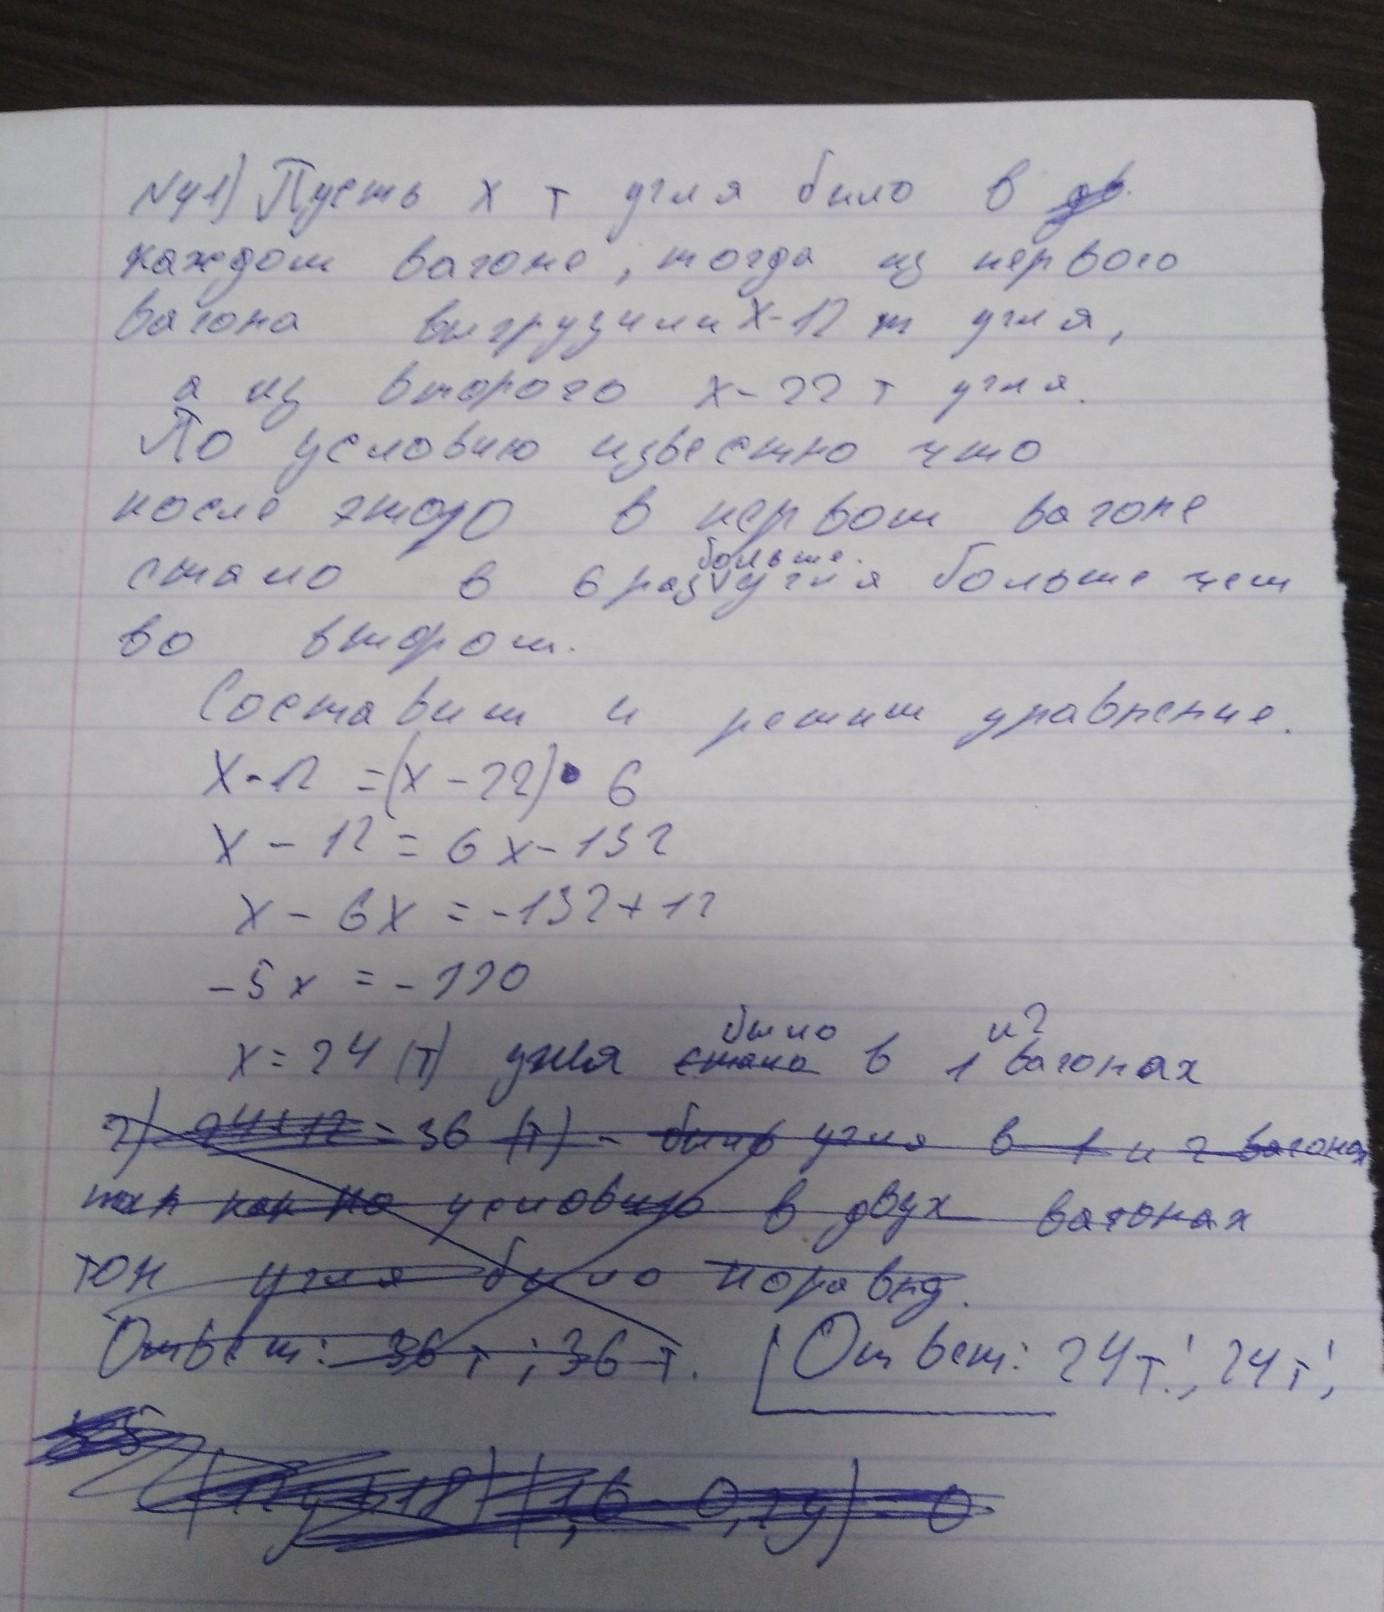 N41) Пусть х т угля было в
каждом вагоне, тогда из первого
вагона выгрузили х-12 т угля,
а из второго х-22 т угля.
По условию известно что
после этого в первом вагоне
стало в 6 раз угля больше чем
больше.
во втором.
Составим и решим уравнение.
х-12 =(х-22)•6
х-12=6х-132
х-6х=-132+12
-5х=-120
х=24 (т) угля стало в 1 вагонах
было и2
2) 24+12=36 (т) - было угля в 1 и 2 вагона
так как по условию в двух вагонах
тон угля было поравну.
Ответ: 36 т; 36 т. Ответ: 24т.; 24т;
(12y+18)(1,6-0,2y)=0